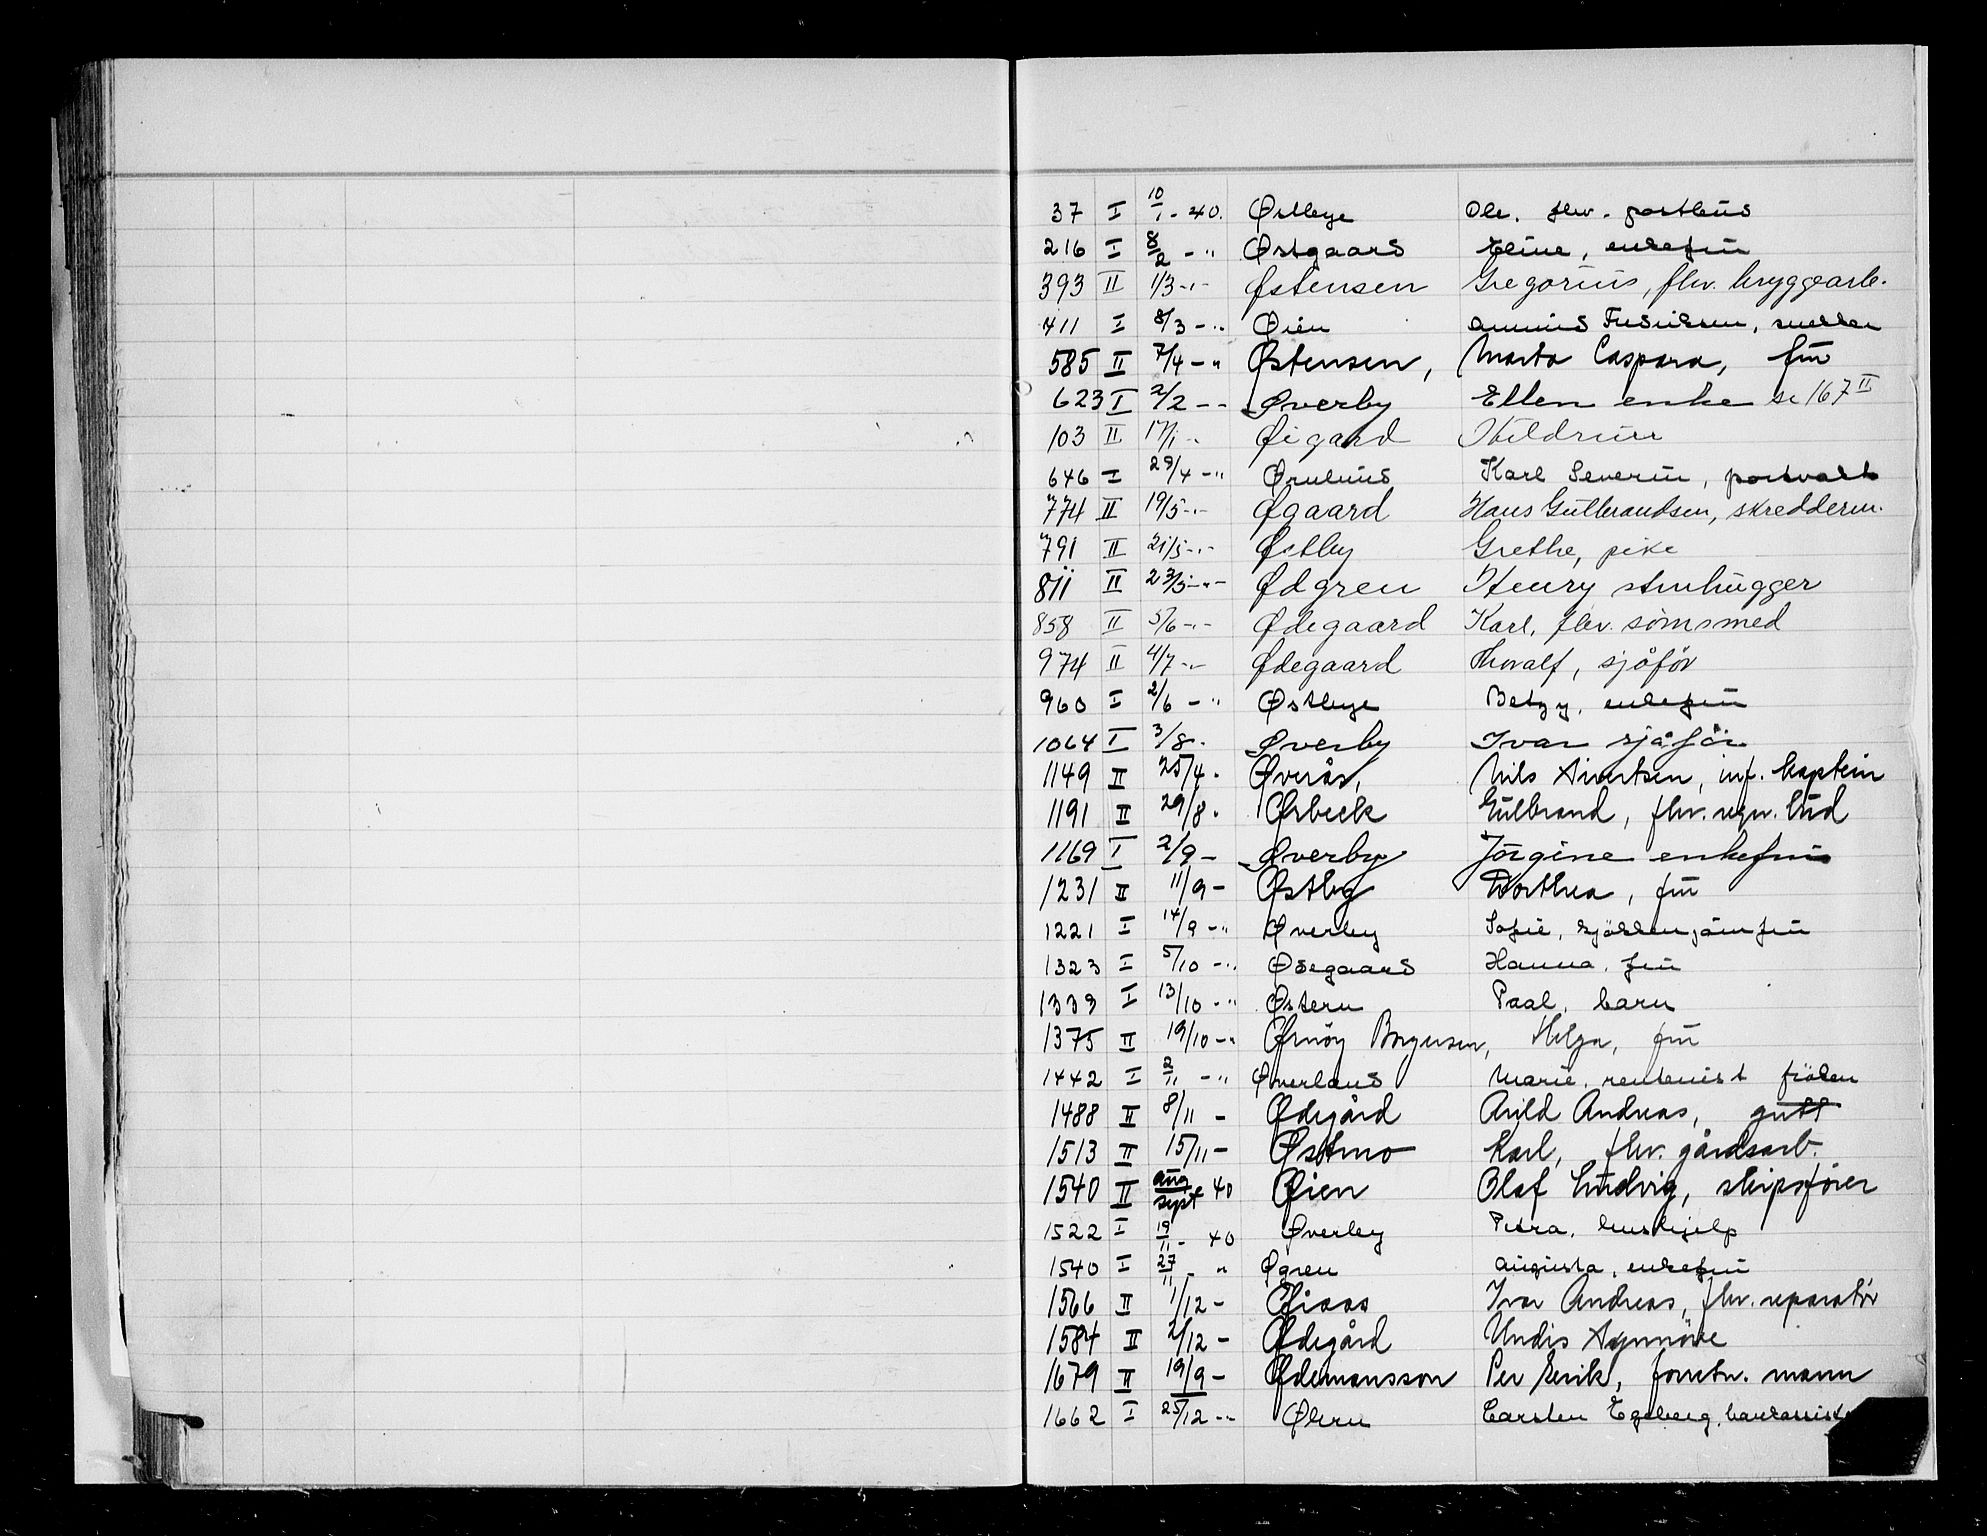 37 I 10/1 - 40. Østbye Ole, fhv. postbud
216 I 8/2 - " Østgaard Eline, enkefru
393 II 1/3 - " - Østensen Gregorius, fhv. bryggearb.
411 I 8/3 - " Øien Fredriksen, snekker
585 II 7/4 - " Østensen, Marta Caspara, fru
623 I 2/2 - - Øverby Ellen enke se 167 II
103 II 17/1 - Øigard Hildrun
646 I 29/4 - " Karl Severin, postvakt
774 II 19/5 - " - Øgaard Hans Gulbrandsen, skredderm.
791 II 21/5 - " - Østby Grethe, pike
811 II 23/5 - " - Ødgren Henry stenhugger
858 II 5/6 - " - Ødegaard Karl, fhv. sömsmed
974 II 4/7 - " - Ødegaard Thoralf, sjåfør
960 I 2/6 - " Østbye Betzy, enkefru
1064 I 3/8 - Øverby Ivar sjåför
1149 II 25/4 - Øverås, Nils Sivertsen, inf. kaptein
1191 II 29/8 - Ørbeck Gulbrand, fhv. regn. bud
1169 I 2/9 - Øverby Jörgine enkefru
1231 II 11/9 - Østby Dorthea, fru
1221 I 14/9 - " Øverby Sofie, kjökkenjomfru
1323 I 5/10 - " Ødegaard Hanna, fru
1339 I 13/10 - " Østern Paal, barn
1375 II 19/10 - " Ørnöy Borgersen, Helga, fru
1442 I 2/11 - " Øverland Marie, rentenist fröken
1488 II 8/11 - Ødegård Arild Andreas, gutt
1513 II 15/11 - Østmo Karl, fhv. gårdsarb.
1540 II aug/sept 40 Øien Olaf Ludvig, skipsfører
1522 I 19/11 - 40 Øverby Petra, hushjelp
1540 I 27/11 - " Øgren Augusta, enkefru
1566 II 1/12 - Øiaas Ivar Andreas, fhv. reparatör
1584 II 2/12 - Ødegård Undis Synnöve
1679 II 19/9 - Ødemansson Per Eerik, forretn. mann
1662 I 25/12 - " Økern Carsten Egeberg,